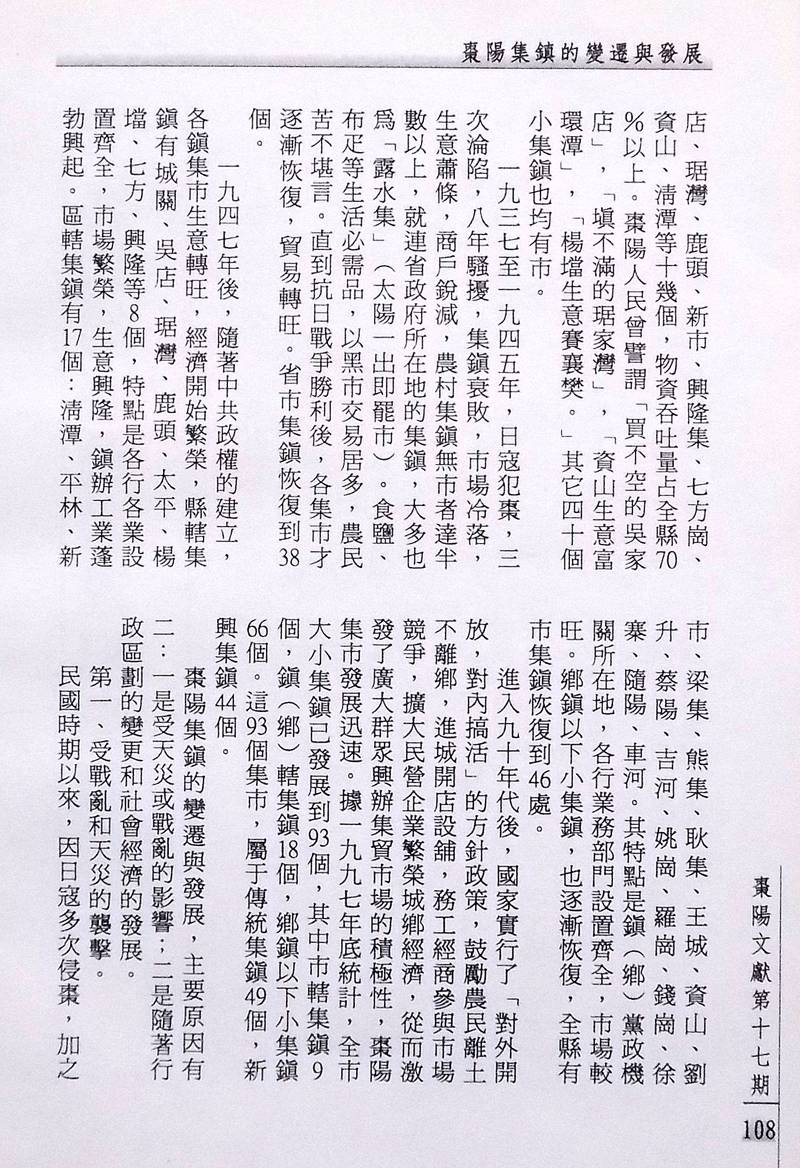 棗陽集鎮的變遷與發展
店、琚灣、鹿頭、新市、興隆集、七方崗、
資山、清潭等十幾個，物資吞吐量占全縣70
%以上。棗陽人民曾譬謂「買不空的吳家
店」，「填不滿的琚家灣」，「資山生意富
環潭」，「楊壋生意賽襄樊。」其它四十個
小集鎮也均有市。
一九三七至一九四五年，日寇犯棗，三
次淪陷，八年騷擾，集鎮衰敗，市場冷落，
生意蕭條，商戶銳減，農村集鎮無市者達半
數以上，就連省政府所在地的集鎮，大多也
為「露水集」（太陽一出即罷市）。食鹽、
布疋等生活必需品，以黑市交易居多，農民
苦不堪言。直到抗日戰爭勝利後，各集市才
逐漸恢復，貿易轉旺。省市集鎮恢復到38
個。
一九四七年後，隨著中共政權的建立，
各鎮集市生意轉旺，經濟開始繁榮，縣轄集
鎮有城關、吳店、琚灣、鹿頭、太平、楊
壋、七方、興隆等8個，特點是各行各業設
置齊全，市場繁榮，生意興隆，鎮辦工業蓬
勃興起。區轄集鎮有17個：清潭、平林、新
市、梁集、熊集、耿集、王城、資山、劉
升、蔡陽、吉河、姚崗、羅崗、錢崗、徐
寨、隨陽、車河。其特點是鎮（鄉）黨政機
關所在地，各行業務部門設置齊全，市場較
旺。鄉鎮以下小集鎮，也逐漸恢復，全縣有
市集鎮恢復到46處。
進入九十年代後，國家實行了「對外開
放，對內搞活」的方針政策，鼓勵農民離土
不離鄉，進城開店設舖，務工經商參與市場
競爭，擴大民營企業繁榮城鄉經濟，從而激
發了廣大群眾興辦集貿市場的積極性，棗陽
集市發展迅速。據一九九七年底統計，全市
大小集鎮已發展到93個，其中市轄集鎮9
個，鎮（鄉）轄集鎮18個，鄉鎮以下小集鎮
66個。這93個集市，屬于傳統集鎮49個，新
興集鎮44個。
棗陽集鎮的變遷與發展，主要原因有
二：一是受天災或戰亂的影響；二是隨著行
政區劃的變更和社會經濟的發展。
第一、受戰亂和天災的襲擊。
民國時期以來，因日寇多次侵棗，加之
棗陽文獻第十七期
108